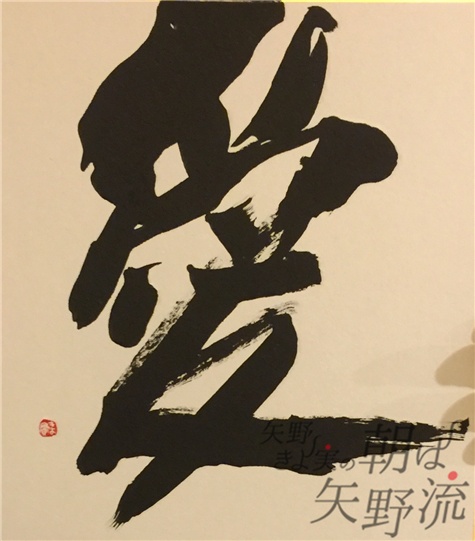 愛
矢野
きよ実の朝は
矢野流